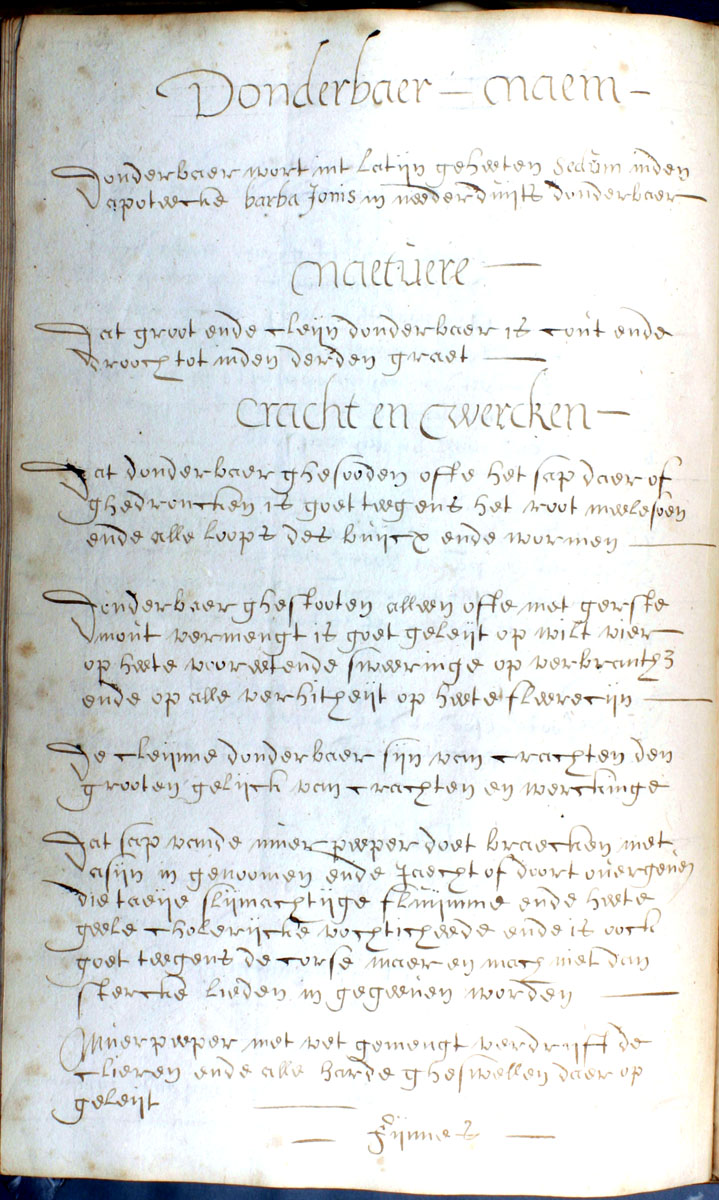 Donderbaer – naem –
Donderbaer wort int latijn geheeten Sedum inden
apoteecke barba Jonis in needer duijts donderbaer
naetuere
Dat groot ende cleijn donderbaer is cout ende
drooch tot inden derden graet
Cracht en wercken –
Dat donderbaer ghesooden ofte het sap daer of
ghedroncken is goet teegens het root meelesoen
ende alle loops des buijcx ende wormen
Donderbaer ghestooten alleen ofte met gerste
mout vermengt is goet geleijt op wilt vier
op heete vooreetende sweeringe op verbranth
ende op alle verhitheijt op heete fleerecijn
De cleijnne donderbaer sijn van crachten den
grooten gelijck van crachten en werckinge
Dat sap vande muer peeper doet braecken met
asijn in genoomen ende Jaecht of doort overgeven
die taeije slijmachtijge fluijmme ende heete
geele cholerijcke vochticheede ende is oock
goet teegens de corse maer en mach niet dan
stercke lieden in gegeeven worden
Muer peeper met vet gemengt verdrijft de
clieren ende alle harde gheswellen daer op
geleijt
Fijnnes